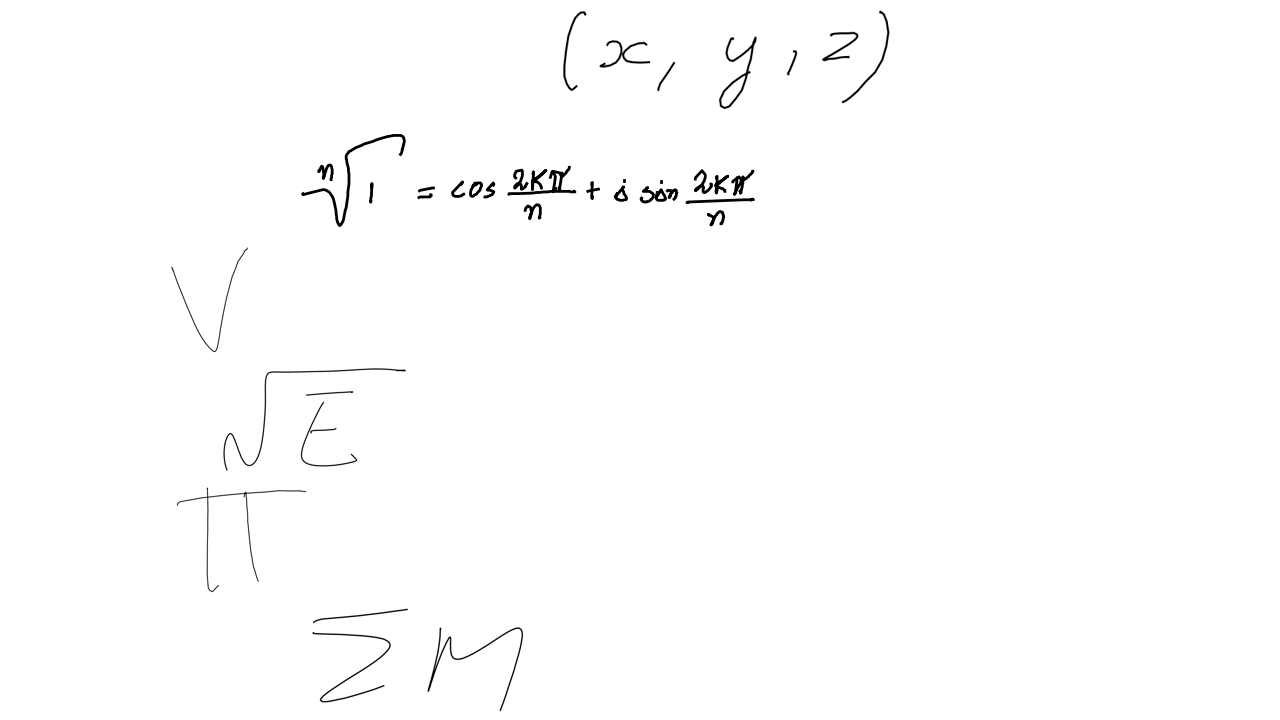 (x, y, z)
ⁿ√1 = cos 2kπ/n + i sin 2kπ/n
V
√E
π
ΣM